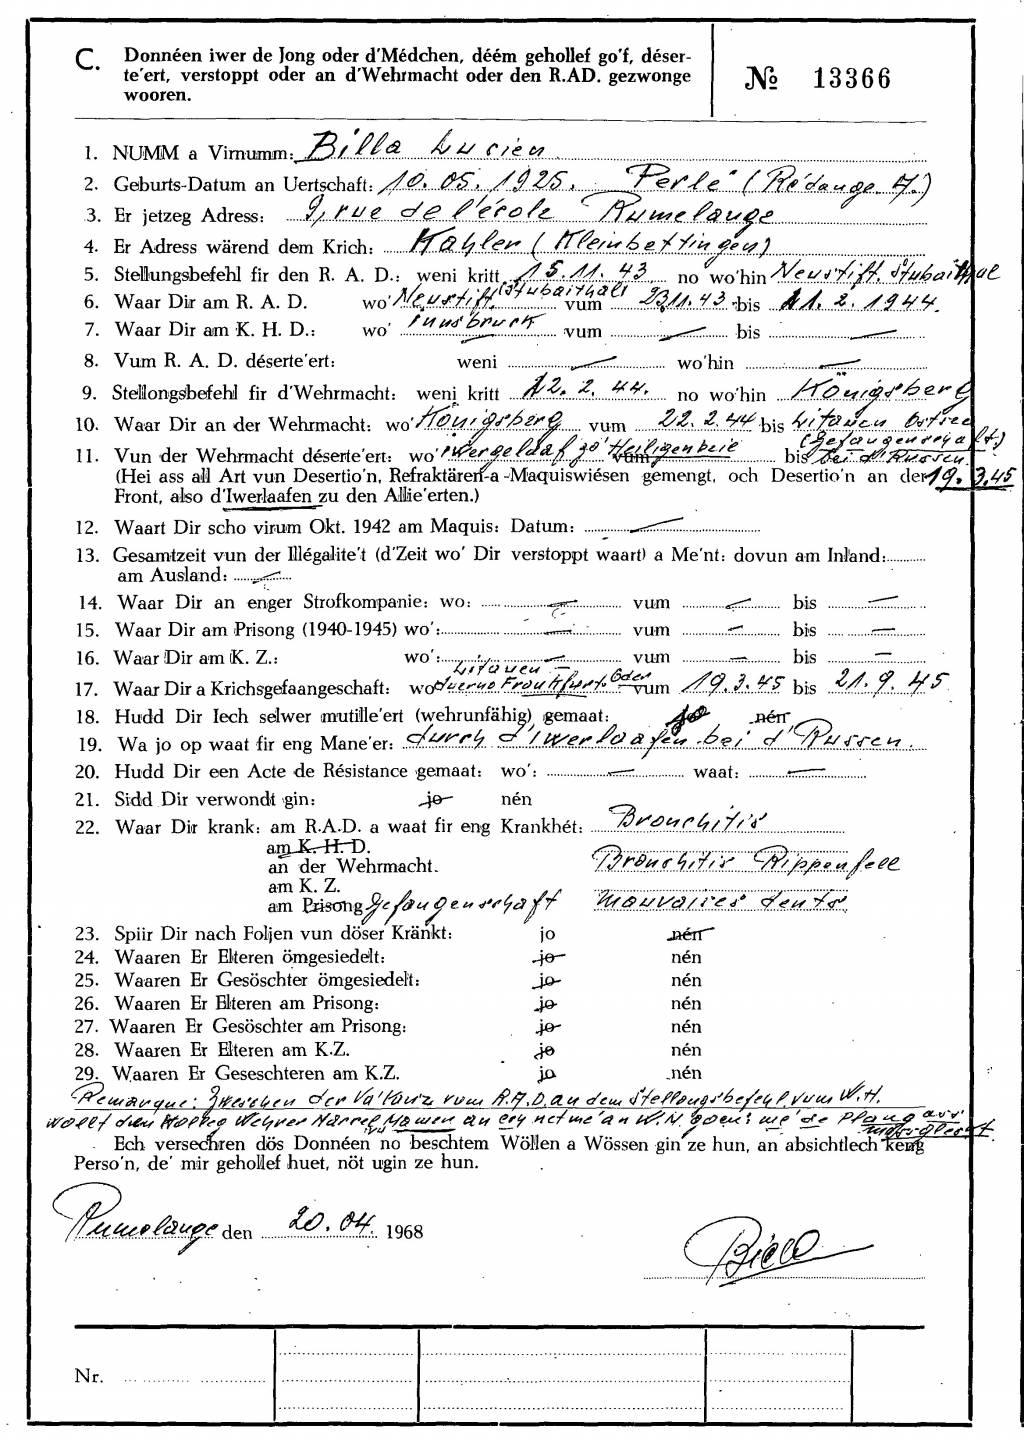 C. Donnéen iwer de Jong oder d'Médchen, déém gehollef go'f, déser-
te'ert, verstoppt oder an d'Wehrmacht oder den R.AD. gezwonge
wooren.
№ 13366
1. NUMM a Virnumm: Billa Lucien
2. Geburts-Datum an Uertschaft: 10.05.1925. Perlé (Rédange A.)
3. Er jetzeg Adress: 9, rue de l'école Rumelange
4. Er Adress wärend dem Krich: Kahler (Kleinbettingen)
5. Stellungsbefehl fir den R. A. D.: weni kritt 15.11.43 no wo'hin Neustift. Stubaithal
6. Waar Dir am R. A. D. wo' Neustift. (Stubaithal) vum 23.11.43 bis 11.2.1944.
7. Waar Dir am K. H. D.: wo' Innsbruck vum — bis —
8. Vum R. A. D. déserte'ert: weni — wo'hin —
9. Stellongsbefehl fir d'Wehrmacht: weni kritt 12.2.44. no wo'hin Königsberg
10. Waar Dir an der Wehrmacht: wo' Königsberg vum 22.2.44 bis Litauen Ostsee
(Gefangenschaft)
11. Vun der Wehrmacht déserte'ert: wo' iwergelaf zo' Heiligenbeie vum bis bei d'Russen
(Hei ass all Art vun Desertio'n, Refraktären-a -Maquiswiésen gemengt, och Desertio'n an der 19.3.45
Front, also d'Iwerlaafen zu den Allie'erten.)
12. Waart Dir scho virum Okt. 1942 am Maquis: Datum: —
13. Gesamtzeit vun der Illégalite't (d'Zeit wo' Dir verstoppt waart) a Me'nt: dovun am Inland:
am Ausland: —
14. Waar Dir an enger Strofkompanie: wo: — vum — bis —
15. Waar Dir am Prisong (1940-1945) wo': — vum — bis —
16. Waar Dir am K. Z.: wo': — vum — bis —
Litauen –
17. Waar Dir a Krichsgefaangeschaft: wo duerno Frankfurt. Oder vum 19.3.45 bis 21.9.45
18. Hudd Dir Iech selwer mutille'ert (wehrunfähig) gemaat: jo nén
19. Wa jo op waat fir eng Mane'er: durch d'iwerlaafen bei d'Russen.
20. Hudd Dir een Acte de Résistance gemaat: wo': — waat: —
21. Sidd Dir verwondt gin: jo nén
22. Waar Dir krank: am R.A.D. a waat fir eng Krankhét: Bronchitis
am K. H. D.
an der Wehrmacht. Bronchitis Rippenfell
am K. Z.
am Prisong Gefangenschaft Mauvaises dents
23. Spiir Dir nach Foljen vun döser Kränkt: jo nén
24. Waaren Er Elteren ömgesiedelt: jo nén
25. Waaren Er Gesöschter ömgesiedelt: jo nén
26. Waaren Er Elteren am Prisong: jo nén
27. Waaren Er Gesöschter am Prisong: jo nén
28. Waaren Er Elteren am K.Z. jo nén
29. Waaren Er Geseschteren am K.Z. jo nén
Remarque: Zweschen der Vakanz vum R.A.D. an dem Stellongsbefehl vum W.H.
wollt den Kolleg Weyner Härreg Mamen an ech net me' an W.H. goen: me' de Plang ass
mössgléckt
Ech versechren dös Donnéen no beschtem Wöllen a Wössen gin ze hun, an absichtlech keng
Perso'n, de' mir gehollef huet, nöt ugin ze hun.
Rumelange den 20.04. 1968
Billa
Nr.